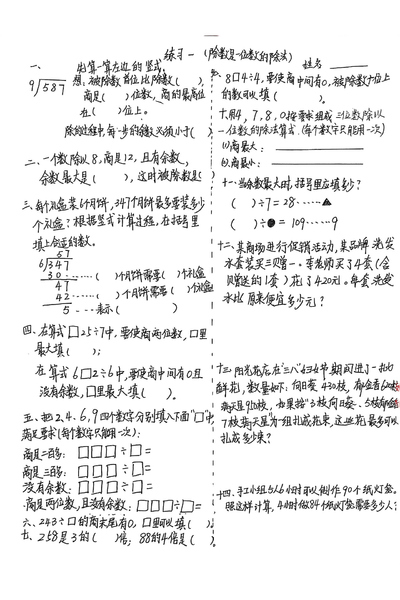 练习一 (除数是一位数的除法)
姓名
一、 先算一算左边的竖式。
9)587 想:被除数首位比除数( ),
商是( )位数,商的最高位
在( )位上。
除的过程中,每一步的余数必须小于( )。
二、一个数除以8,商是12,且有余数,
余数最大是( ),这时被除数是( )
三、每个礼盒装6个月饼,347个月饼最多要装多少
个礼盒?根据竖式计算过程,在括号里
填上合适的数。
57
6)347
30……( )个月饼需要( )个礼盒
47
42……( )个月饼需要( )个礼盒
5……表示( )
四、在算式□25÷7中,要使商两位数,□里
最大填( );
在算式6□2÷6中,要使商中间有0且
没有余数,□里最大填( )。
五、把2、4、6、9四个数字分别填入下面"□"中,
满足要求(每个数字只能用一次):
商是二百多: □□□÷□=
商是三百多: □□□÷□=
没有余数: □□□÷□=
商是两位数,且没有余数:□□□÷□=
六、243÷□的商末尾有0,□里可以填( )。
七、258是3的( )倍; 88的4倍是( )。
八、8□4÷4,要使商中间有0,被除数十位上
的数可以填( )。
4,7,8,0按要求组成三位数除以
一位数的除法算式。(每个数字只能用一次)
(1)商最大:
(2)商最小:
十一、当余数最大时,括号里应填多少?
( )÷7=28……▲
( )÷●=109……9
十二、某商场进行促销活动,某品牌洗发
水套装买三赠一。李老师买了4套(含
赠送的1套)花了420元。每套洗发
水比原来便宜多少元?
十三、阳光花店在"三八"妇女节期间进了一批
鲜花,数量如下:向日葵430枝,
满天星910枝,如果按"3枝向日葵、5枝
7枝满天星"为一组扎成花束,这些花最多可以
扎成多少束?
十四、手工小组5人6小时可以制作90个纸灯笼。
照这样计算,4小时做84个纸灯笼需要多少人?